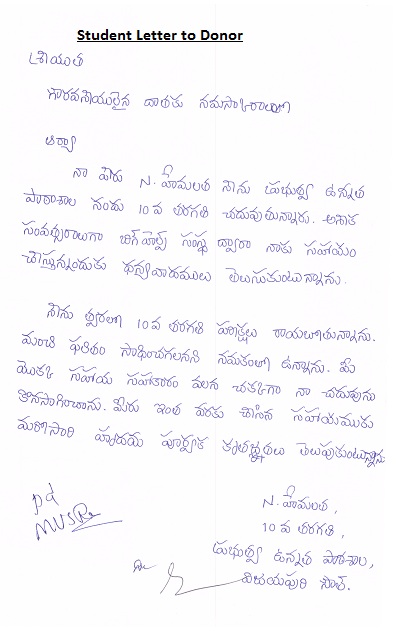 Student Letter to Donor
శ్రీయుత
గౌరవనీయులైన దాతకు నమస్కారాలతో
ఆర్యా
నా పేరు N. హేమలత నేను ప్రభుత్వ ఉన్నత
పాఠాశాల నందు 10 వ తరగతి చదువుతున్నాను. అనేక
సంవత్సరాలుగా బిగ్ హెల్ప్ సంస్థ ద్వారా నాకు సహాయం
చేస్తున్నందుకు ధన్యవాదములు తెలుపుతుంటున్నాను.
నేను త్వరలో 10 వ తరగతి పరీక్షలు రాయబోతున్నాను.
మంచి ఫలితం సాధించగలనని నమకంతో ఉన్నాను. మీ
యొక్క సహాయ సహకారం వలన చక్కగా నా చదువును
కొనసాగించాను. మీరు ఇంత వరకు చేసిన సహాయముకు
మరొసారి హృదయ పూర్వక కృతజ్ఞతలు తెలుపుకుంటున్నాను
N. హేమలత,
10 వ తరగతి,
ప్రభుత్వ ఉన్నత పాఠశాల,
విజయపురి సౌత్.